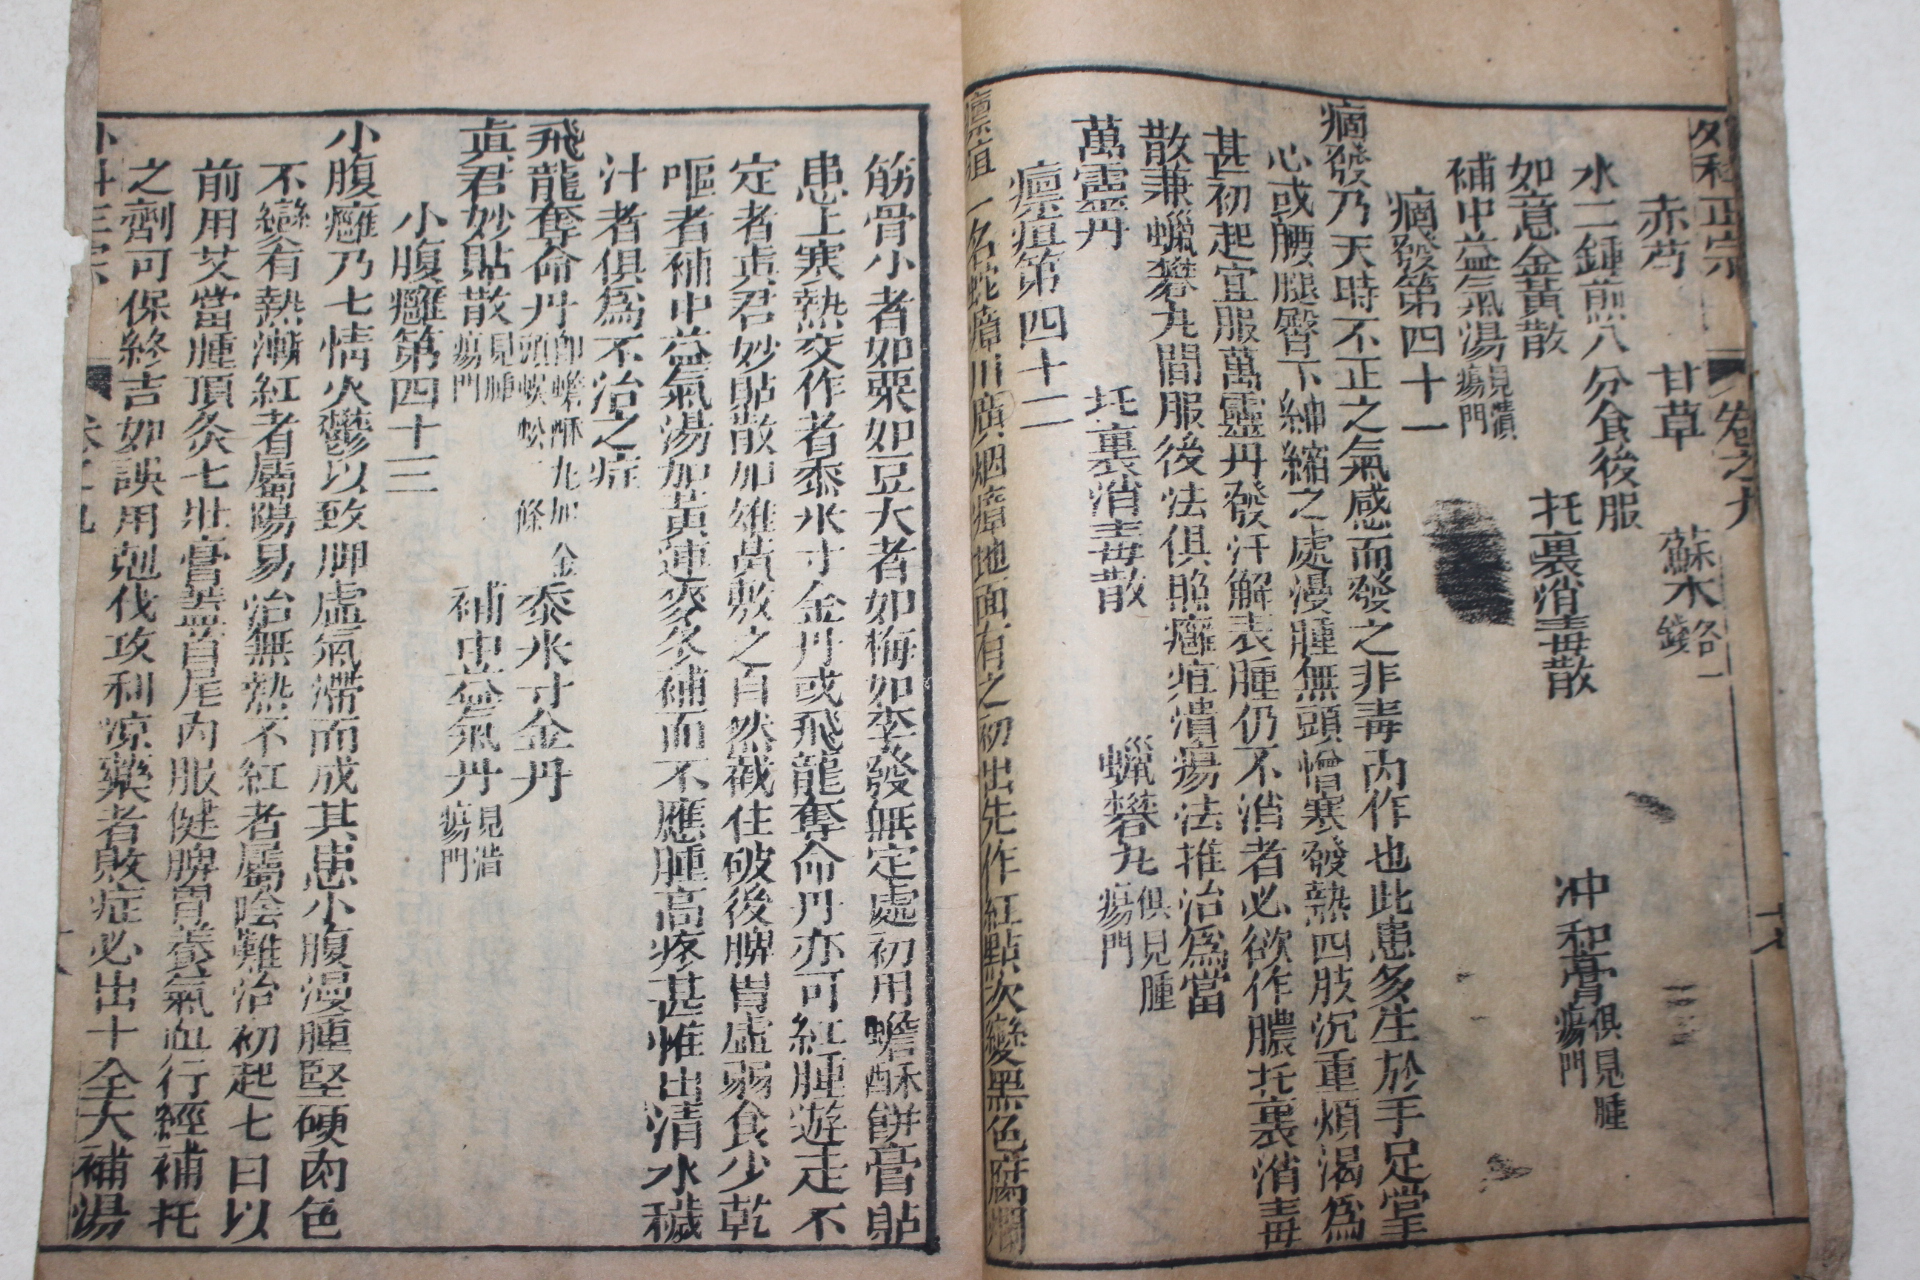 外科正宗 卷之九
赤芍 甘草 蘇木各一錢
水二鍾煎八分食後服
如意金黃散 托裏消毒散 冲和膏俱見腫瘍門
補中益氣湯見潰瘍門
瘸發第四十一
瘸發乃天時不正之氣感而發之非毒內作也此患多生於手足掌
心或腰腿臀下紳縮之處漫腫無頭憎寒發熱四肢沉重煩渴爲
甚初起宜服萬靈丹發汗解表腫仍不消者必欲作膿托裏消毒
散兼蠟礬丸間服後法俱照癰疽潰瘍法推治爲當
萬靈丹 托裏消毒散 蠟礬丸俱見腫瘍門
瘭疽第四十二
瘭疽一名蛇瘴川廣烟瘴地面有之初出先作紅點次變黑色腐爛
筋骨小者如粟如豆大者如梅如李發無定處初用蟾酥餅膏貼
患上寒熱交作者黍米寸金丹或飛龍奪命丹亦可紅腫遊走不
定者真君妙貼散加雄黃敷之自然截住破後脾胃虛弱食少乾
嘔者補中益氣湯加黃連麥冬補而不應腫高疼甚惟出清水穢
汁者俱爲不治之症
飛龍奪命丹即蟾酥丸加金頭蜈蚣一條 黍米寸金丹
真君妙貼散見腫瘍門 補中益氣丹見潰瘍門
小腹癰第四十三
小腹癰乃七情火鬱以致脾虛氣滯而成其患小腹漫腫堅硬肉色
不變有熱漸紅者屬陽易治無熱不紅者屬陰難治初起七日以
前用艾當腫頂灸七壯膏蓋首尾內服健脾胃養氣血行經補托
之劑可保終吉如誤用剋伐攻利凉藥者敗症必出十全大補湯